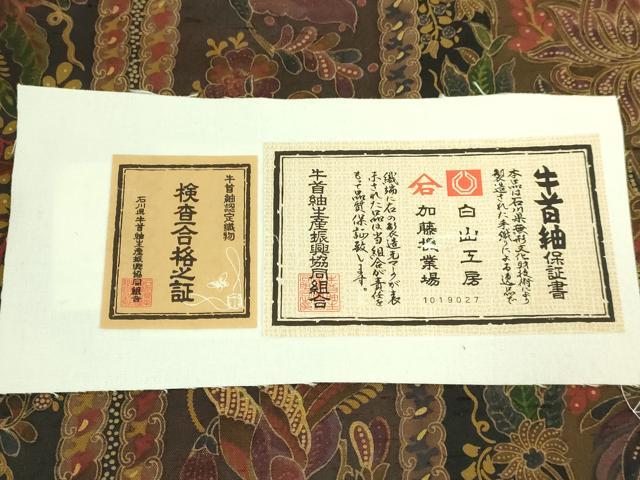 牛首紬保証書
本品は石川県無形文化財技術により
製造された手織りによる逸品で
白山工房
加藤機業場
1019027
織端に右の製造元マークが表
示された品は当組合が責任を
もって品質保証致します。
牛首紬生産振興協同組合
牛首紬認定織物
検査合格之証
石川県牛首紬生産振興協同組合